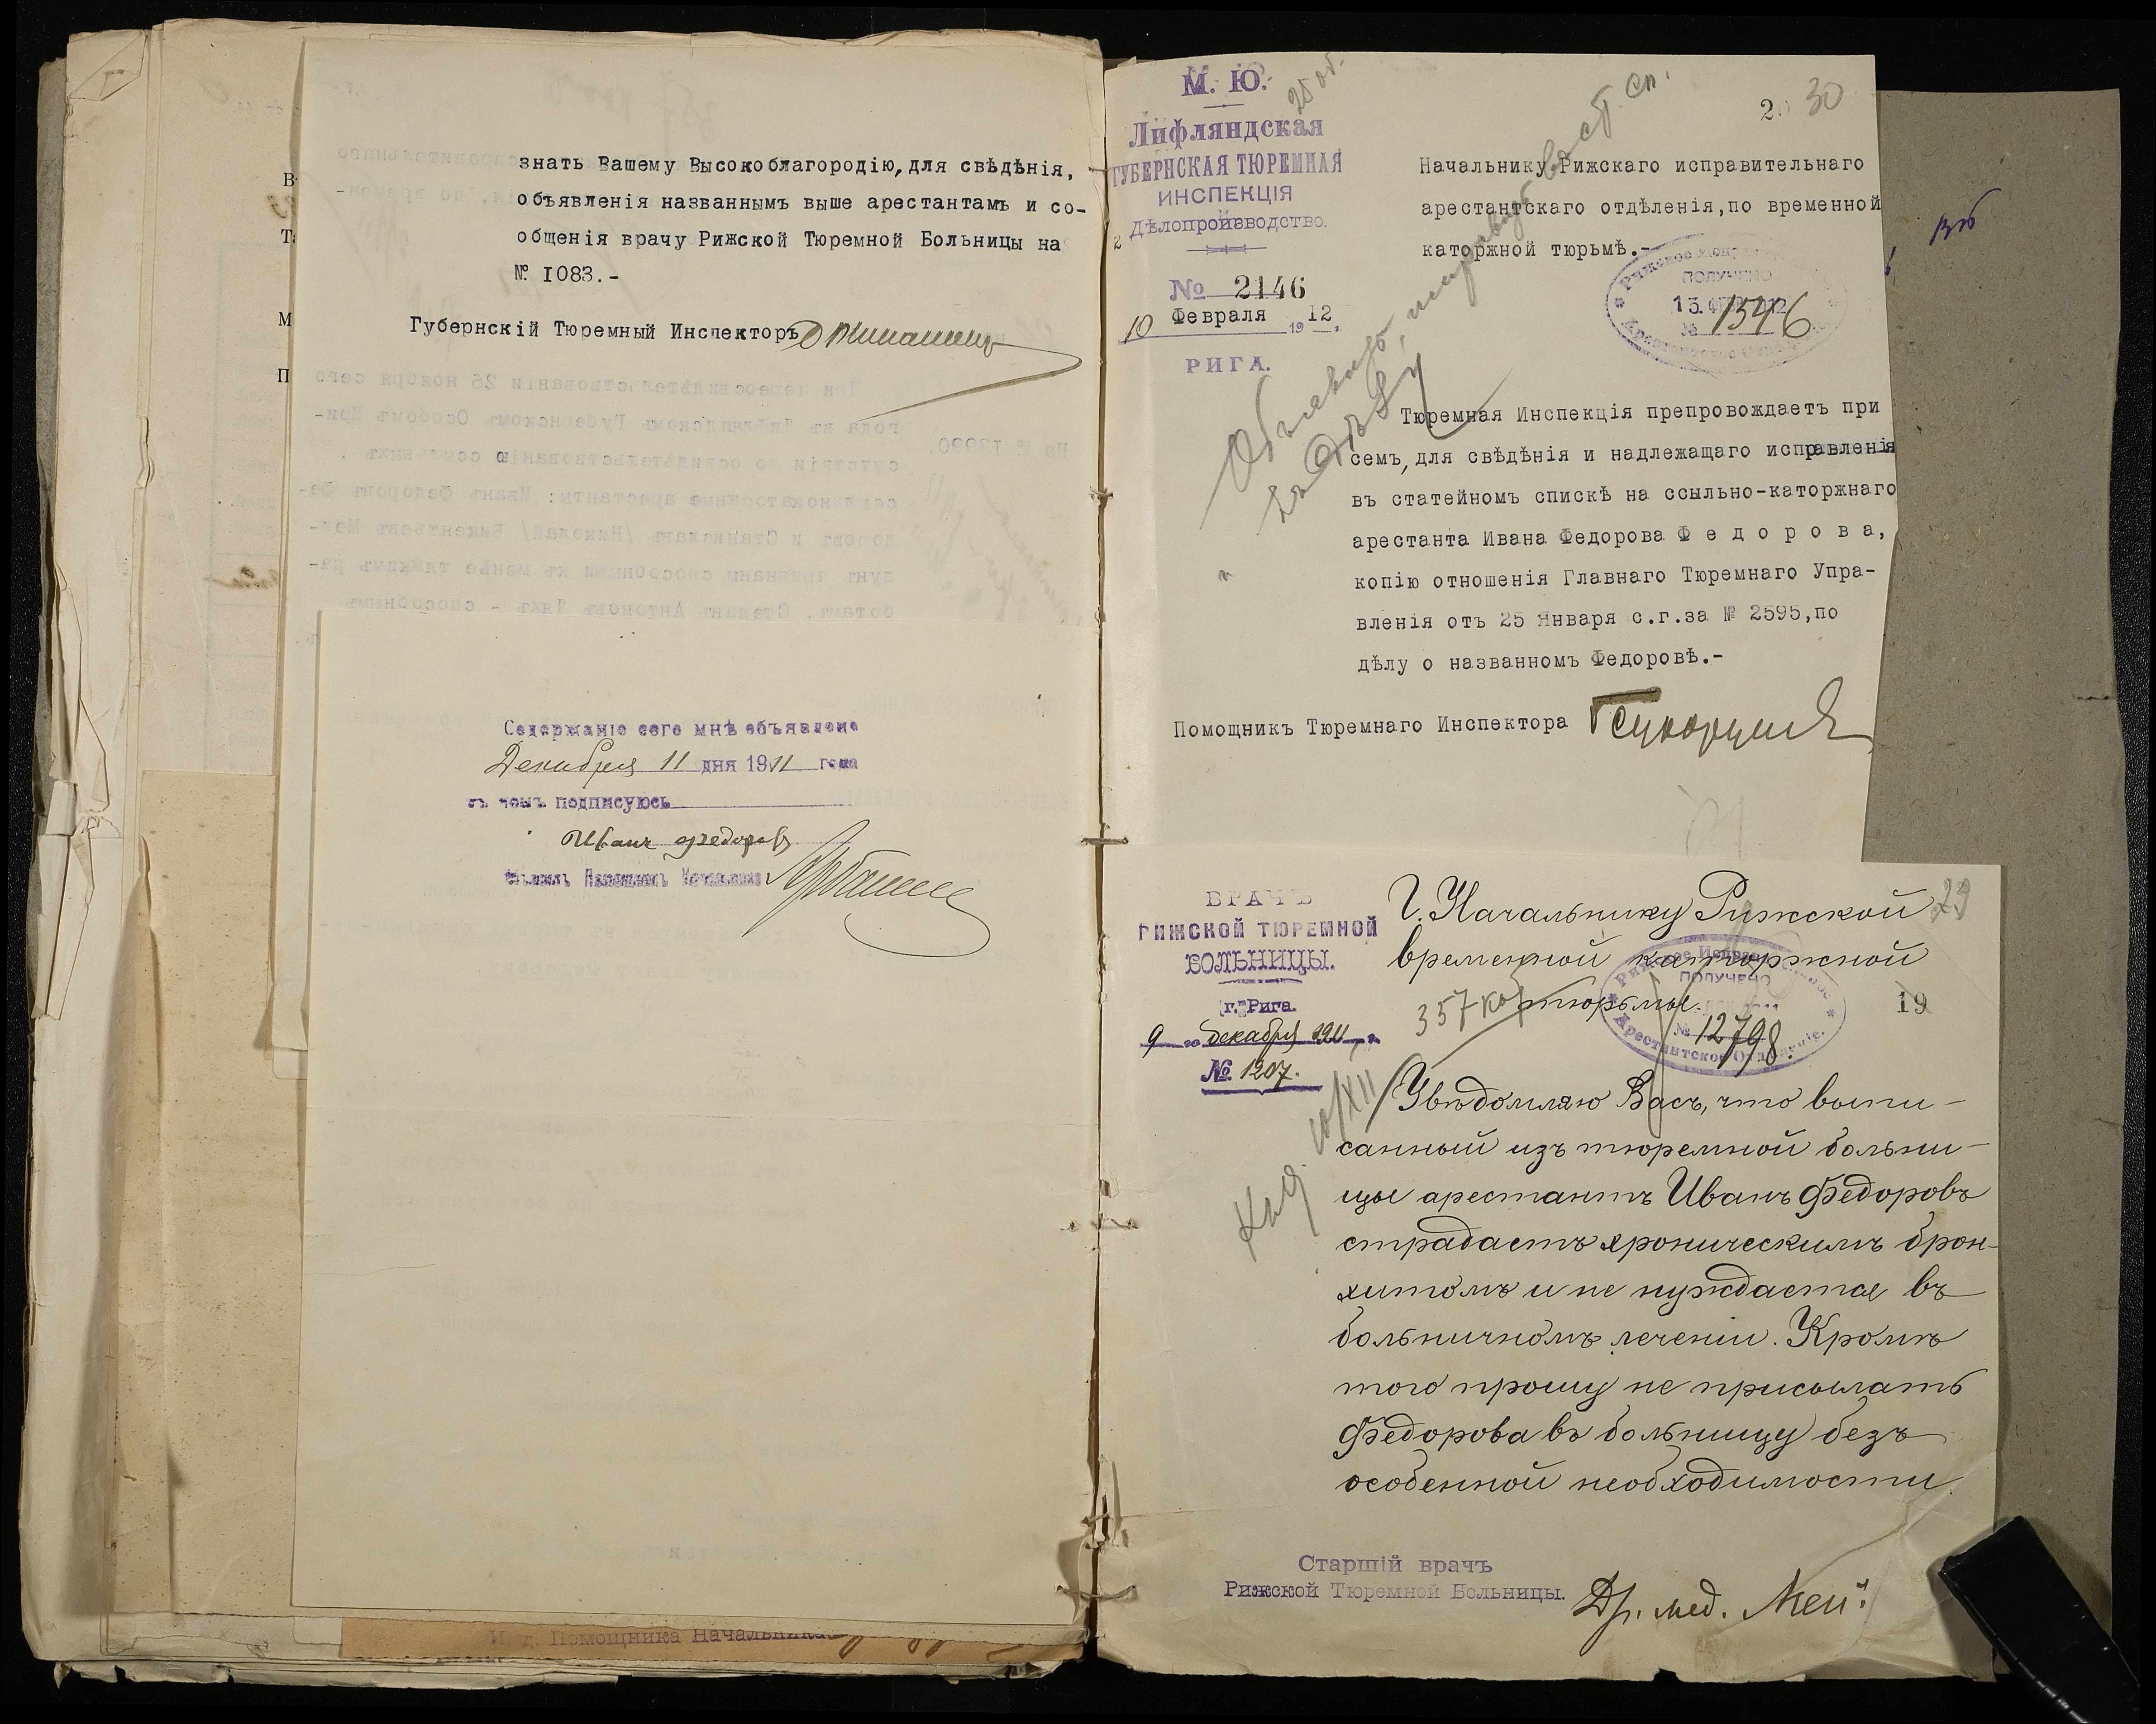 знать Вашему Высокоблагородію, для свѣдѣнія,
объявленія названнымъ выше арестантамъ и со-
общенія врачу Рижской Тюремной Больницы на
№ 1083.-
Губернскій Тюремный Инспекторъ
Содержаніе сего мнѣ объявлено
Декабря 11 дня 1911 года
въ чемъ подписуюсь
Иванъ Федоровъ
Помощникъ Начальника
И. д. Помощника Начальника
М. Ю.
25 об.
Лифляндская
ГУБЕРНСКАЯ ТЮРЕМНАЯ
ИНСПЕКЦІЯ
Дѣлопроизводство.
№ 2146
10 Февраля 1912 г.
РИГА.
30
Начальнику Рижскаго исправительнаго
арестантскаго отдѣленія, по временной
каторжной тюрьмѣ.-
ПОЛУЧЕНО
№ 1546
Объявить, исправить ст. сп.
къ дѣлу
Тюремная Инспекція препровождаетъ при
семъ, для свѣдѣнія и надлежащаго исправленія
въ статейномъ спискѣ на ссыльно-каторжнаго
арестанта Ивана Федорова Ф е д о р о в а,
копію отношенія Главнаго Тюремнаго Упра-
вленія отъ 25 Января с.г. за № 2595, по
дѣлу о названномъ Федоровѣ.-
Помощникъ Тюремнаго Инспектора
ВРАЧЪ
РИЖСКОЙ ТЮРЕМНОЙ
БОЛЬНИЦЫ.
г. Рига.
9 го декабря 1911 г.
№ 1207.
29
Г. Начальнику Рижской
временной каторжной
тюрьмы.
357 кат
19
ПОЛУЧЕНО
№ 12798.
Арестантское Отдѣленіе.
10/XII
Увѣдомляю Васъ, что выпи-
санный изъ тюремной больни-
цы арестантъ Иванъ Федоровъ
страдаетъ хроническимъ брон-
хитомъ и не нуждается въ
больничномъ леченіи. Кромѣ
того прошу не присылать
Федорова въ больницу безъ
особенной необходимости.
Старшій врачъ
Рижской Тюремной Больницы.
Др. мед.